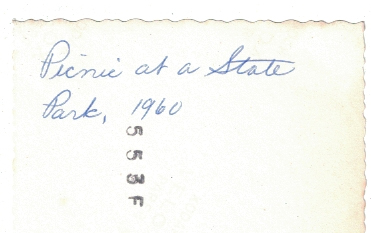 Picnic at a State
Park, 1960
553F